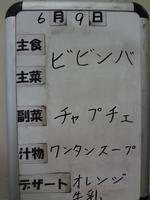 6月9日
主食
主菜
ビビンバ
副菜 チャプチェ
汁物 ワンタンスープ
デザート オレンジ
牛乳